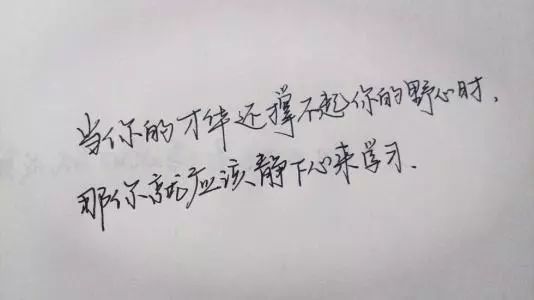 当你的才华还撑不起你的野心时，
那你就应该静下心来学习.